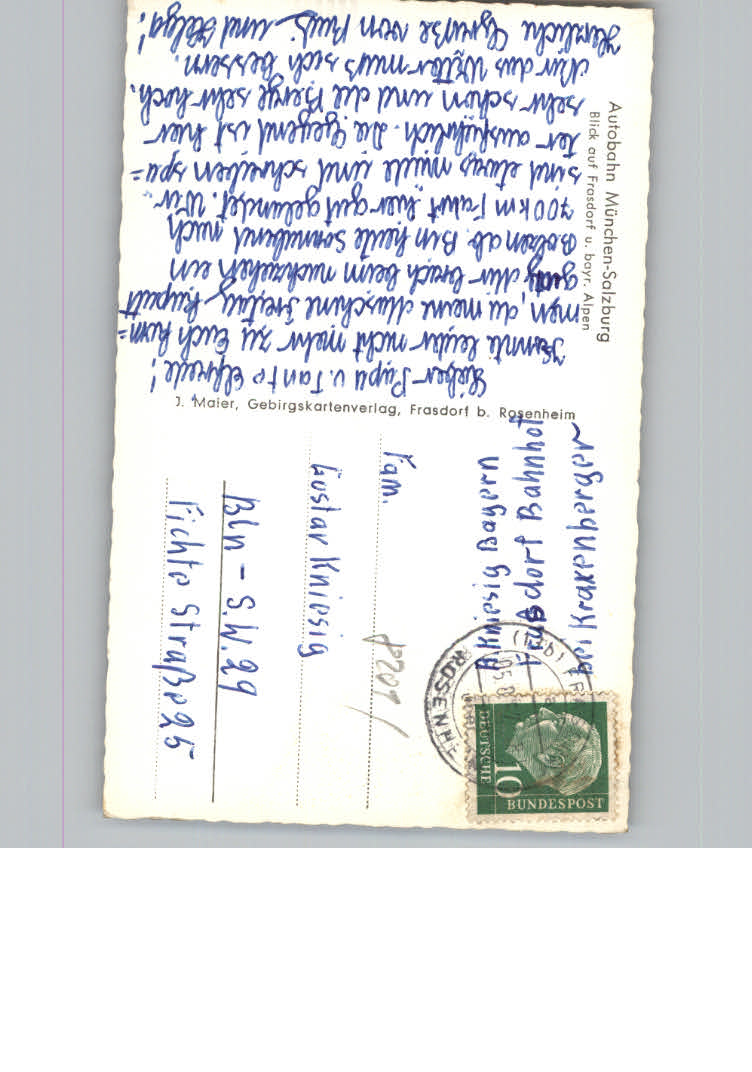 Autobahn München-Salzburg
Blick auf Frasdorf u. bayr. Alpen
J. Maier, Gebirgskartenverlag, Frasdorf b. Rosenheim
Lieber Papa u. Tante Elfriede!
Konnte leider nicht mehr zu Euch kom=
men, da meine Maschine Freitag kaputt
ging mir brach beim nachziehen ein
Bolzen ab. Bin heute Sonnabend nach
700 km Fahrt hier gut gelandet. Wir
sind etwas müde und schreiben spä=
ter ausführlich. Die Gegend ist hier
sehr schön und die Berge sehr hoch.
Nur das Wetter muss sich bessern.
Herzliche Grüße von und Helga!
Kniesig Bayern
Bahnhof
bei
Fam.
Gustav Kniesig
Bln - S.W. 29
Fichte Straße 25
8209
(13b)
ROSENH
DEUTSCHE
BUNDESPOST
10